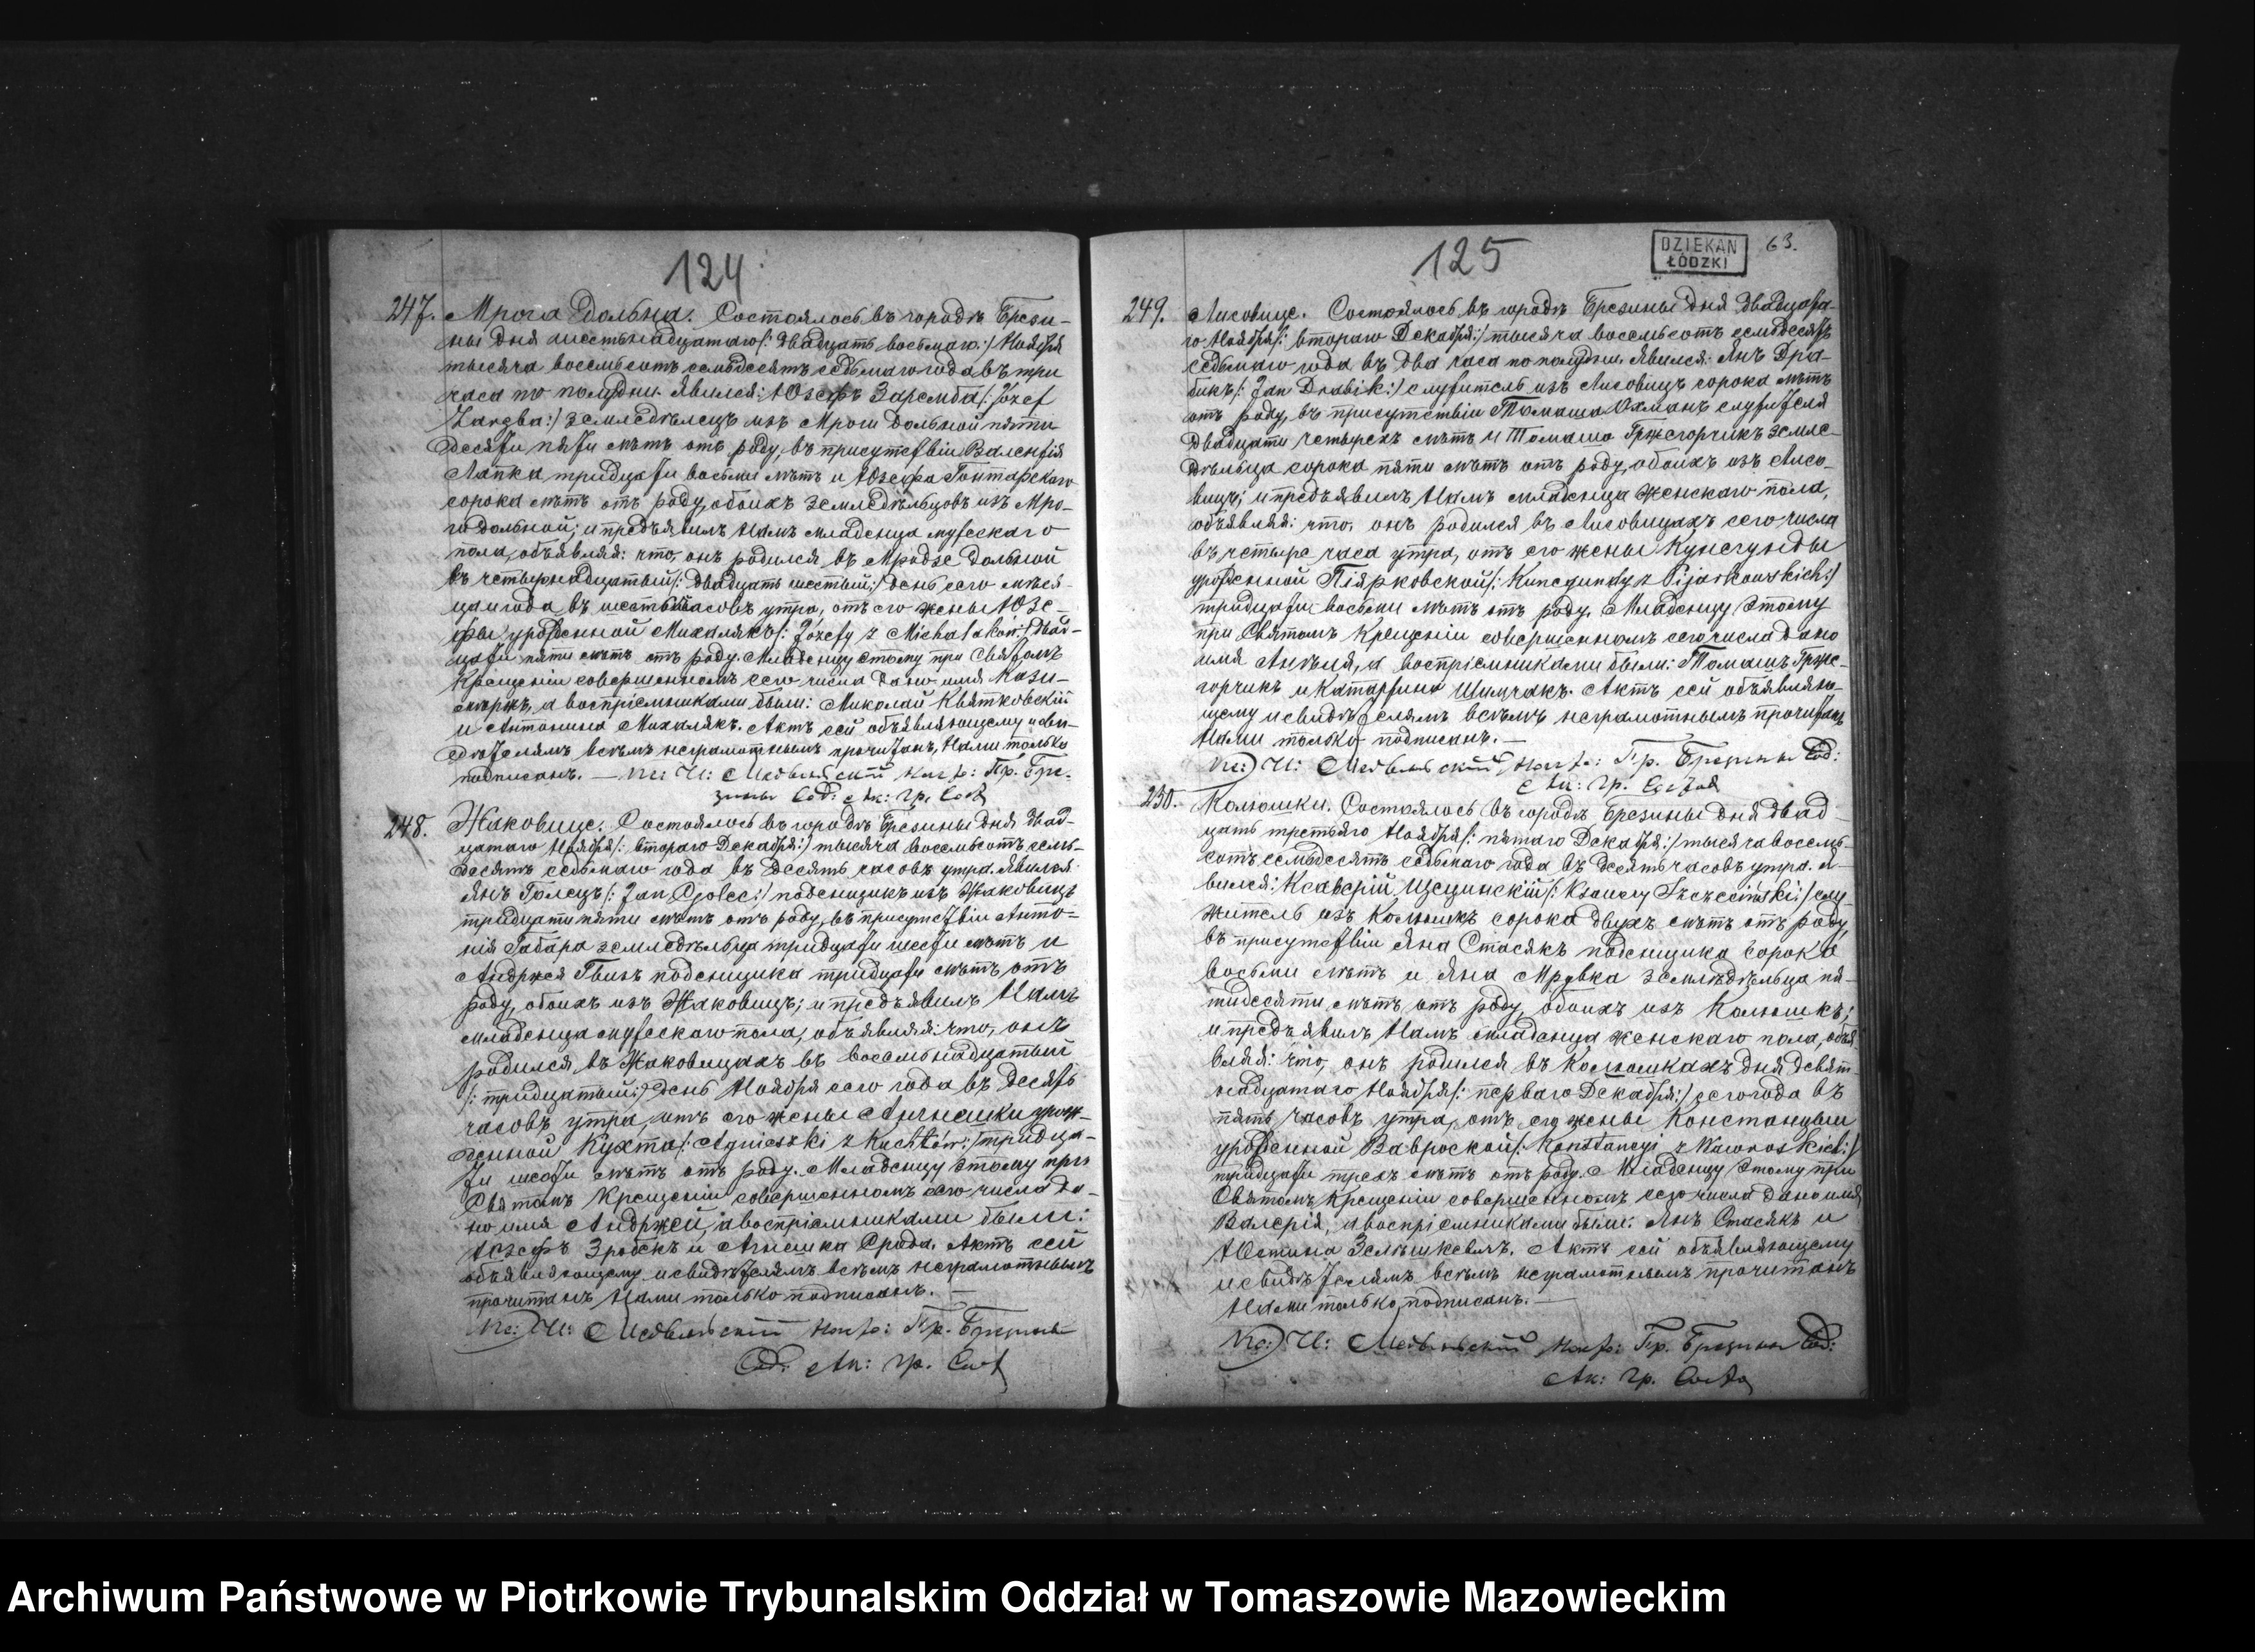 124
247. Мрога Дольна. Состоялось въ городѣ Брези-
ны дня шестьнадцатаго /: двадцать восьмаго :/ Ноября
тысяча восемьсотъ семьдесятъ седьмаго года въ три
часа по полудни. Явился: Юзефъ Заремба /: Józef
Zaręba :/ земледѣлецъ изъ Мроги Дольной пяти
десяти пяти лѣтъ отъ роду, въ присутствіи Валентія
Лапка тридцати восьми лѣтъ и Юзефа
сорока лѣтъ отъ роду, обоихъ земледѣльцовъ изъ Мро-
ги Дольной; и предъявилъ Намъ младенца мужескаго
пола, объявляя: что, онъ родился въ Мродзе Дольной
въ четырнадцатый /: двадцать шестый :/ день сего мѣся-
ца и года въ шесть часовъ утра, отъ его жены Юзе-
фы урожденной Михалякъ /: Józefy z Michalaków :/ двад-
цати пяти лѣтъ отъ роду. Младенцу этому при Святомъ
Крещеніи совершенномъ сего числа дано имя Кази-
мѣржъ, а воспріемниками были: Миколай Квятковскій
и Антонина Михалякъ. Актъ сей объявляющему и сви-
дѣтелямъ всѣмъ неграмотнымъ прочитанъ, Нами только
подписанъ. —
248. Жаковице. Состоялось въ городѣ Брезины дня двад-
цатаго Ноября /: втораго Декабря :/ тысяча восемьсотъ семь-
десятъ седьмаго года въ десять часовъ утра. Явился
Янъ Голецъ /: Jan Golec :/ поденщикъ изъ Жаковицъ
тридцати пяти лѣтъ отъ роду, въ присутствіи Анто-
нія Габара земледѣльца тридцати шести лѣтъ и
Андржея Гвизъ поденщика тридцати лѣтъ отъ
роду, обоихъ изъ Жаковицъ; и предъявилъ Намъ
младенца мужескаго пола, объявляя: что, онъ
родился въ Жаковицахъ въ восемьнадцатый
/: тридцатый :/ день Ноября сего года въ десять
часовъ утра, отъ его жены Агнешки урож-
денной Кухта /: Agnieszki z Kuchtów :/ тридца-
ти шести лѣтъ отъ роду. Младенцу этому при
Святомъ Крещеніи совершенномъ сего числа да-
но имя Андржей, а воспріемниками были:
Юзефъ и Агнешка Срода. Актъ сей
объявляющему и свидѣтелямъ всѣмъ неграмотнымъ
прочитанъ Нами только подписанъ. —
125
DZIEKAN
ŁÓDZKI
63.
249. Лисовице. Состоялось въ городѣ Брезины дня двадцата-
го Ноября /: втораго Декабря :/ тысяча восемьсотъ семьдесятъ
седьмаго года въ два часа по полудни. Явился: Янъ Дра-
бикъ /: Jan Drabik :/ служитель изъ Лисовицъ сорока лѣтъ
отъ роду, въ присутствіи Томаша Охманъ служителя
двадцати четырехъ лѣтъ и Томаша Гржегорчикъ земле-
дѣльца сорока пяти лѣтъ отъ роду, обоихъ изъ Лисо-
вицъ; и предъявилъ Намъ младенца женскаго пола,
объявляя: что, онъ родился въ Лисовицахъ сего числа
въ четыре часа утра, отъ его жены Кунегунды
урожденной Піярковской /: Kunegundy z Pijarkowskich :/
тридцати восьми лѣтъ отъ роду. Младенцу этому
при Святомъ Крещеніи совершенномъ сего числа дано
имя а воспріемниками были: Томашъ Грже-
горчикъ и Катаржина Шимчакъ. Актъ сей объявляю-
щему и свидѣтелямъ всѣмъ неграмотнымъ прочитанъ
Нами только подписанъ. —
250. Колюшки. Состоялось въ городѣ Брезины дня двад-
цать третьяго Ноября /: пятаго Декабря :/ тысяча восемь-
сотъ семьдесятъ седьмаго года въ десять часовъ утра. Я-
вился: Ксаверій слу-
житель изъ Колюшкъ сорока двухъ лѣтъ отъ роду,
въ присутствіи Яна Стасякъ поденщика сорока
восьми лѣтъ и Яна Мрувка земледѣльца пя-
тидесяти лѣтъ отъ роду, обоихъ изъ Колюшкъ;
и предъявилъ Намъ младенца женскаго пола, объя-
вляя: что, онъ родился въ Колюшкахъ дня девят-
надцатаго Ноября /: перваго Декабря :/ сего года въ
пять часовъ утра, отъ его жены Констанціи
урожденной /: Konstancyi z
тридцати трехъ лѣтъ отъ роду. Младенцу этому при
Святомъ Крещеніи совершенномъ сего числа дано имя
Валерія, а воспріемниками были: Янъ Стасякъ и
Юстина Актъ сей объявляющему
и свидѣтелямъ всѣмъ неграмотнымъ прочитанъ
Нами только подписанъ. —
Archiwum Państwowe w Piotrkowie Trybunalskim Oddział w Tomaszowie Mazowieckim